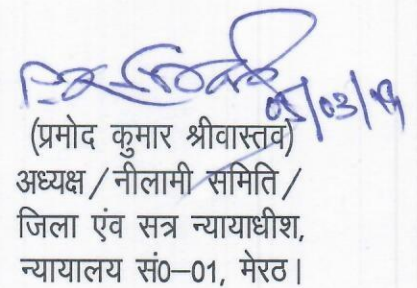 05/03/19
(प्रमोद कुमार श्रीवास्तव)
अध्यक्ष/नीलामी समिति/
जिला एंव सत्र न्यायाधीश,
न्यायालय सं0–01, मेरठ।